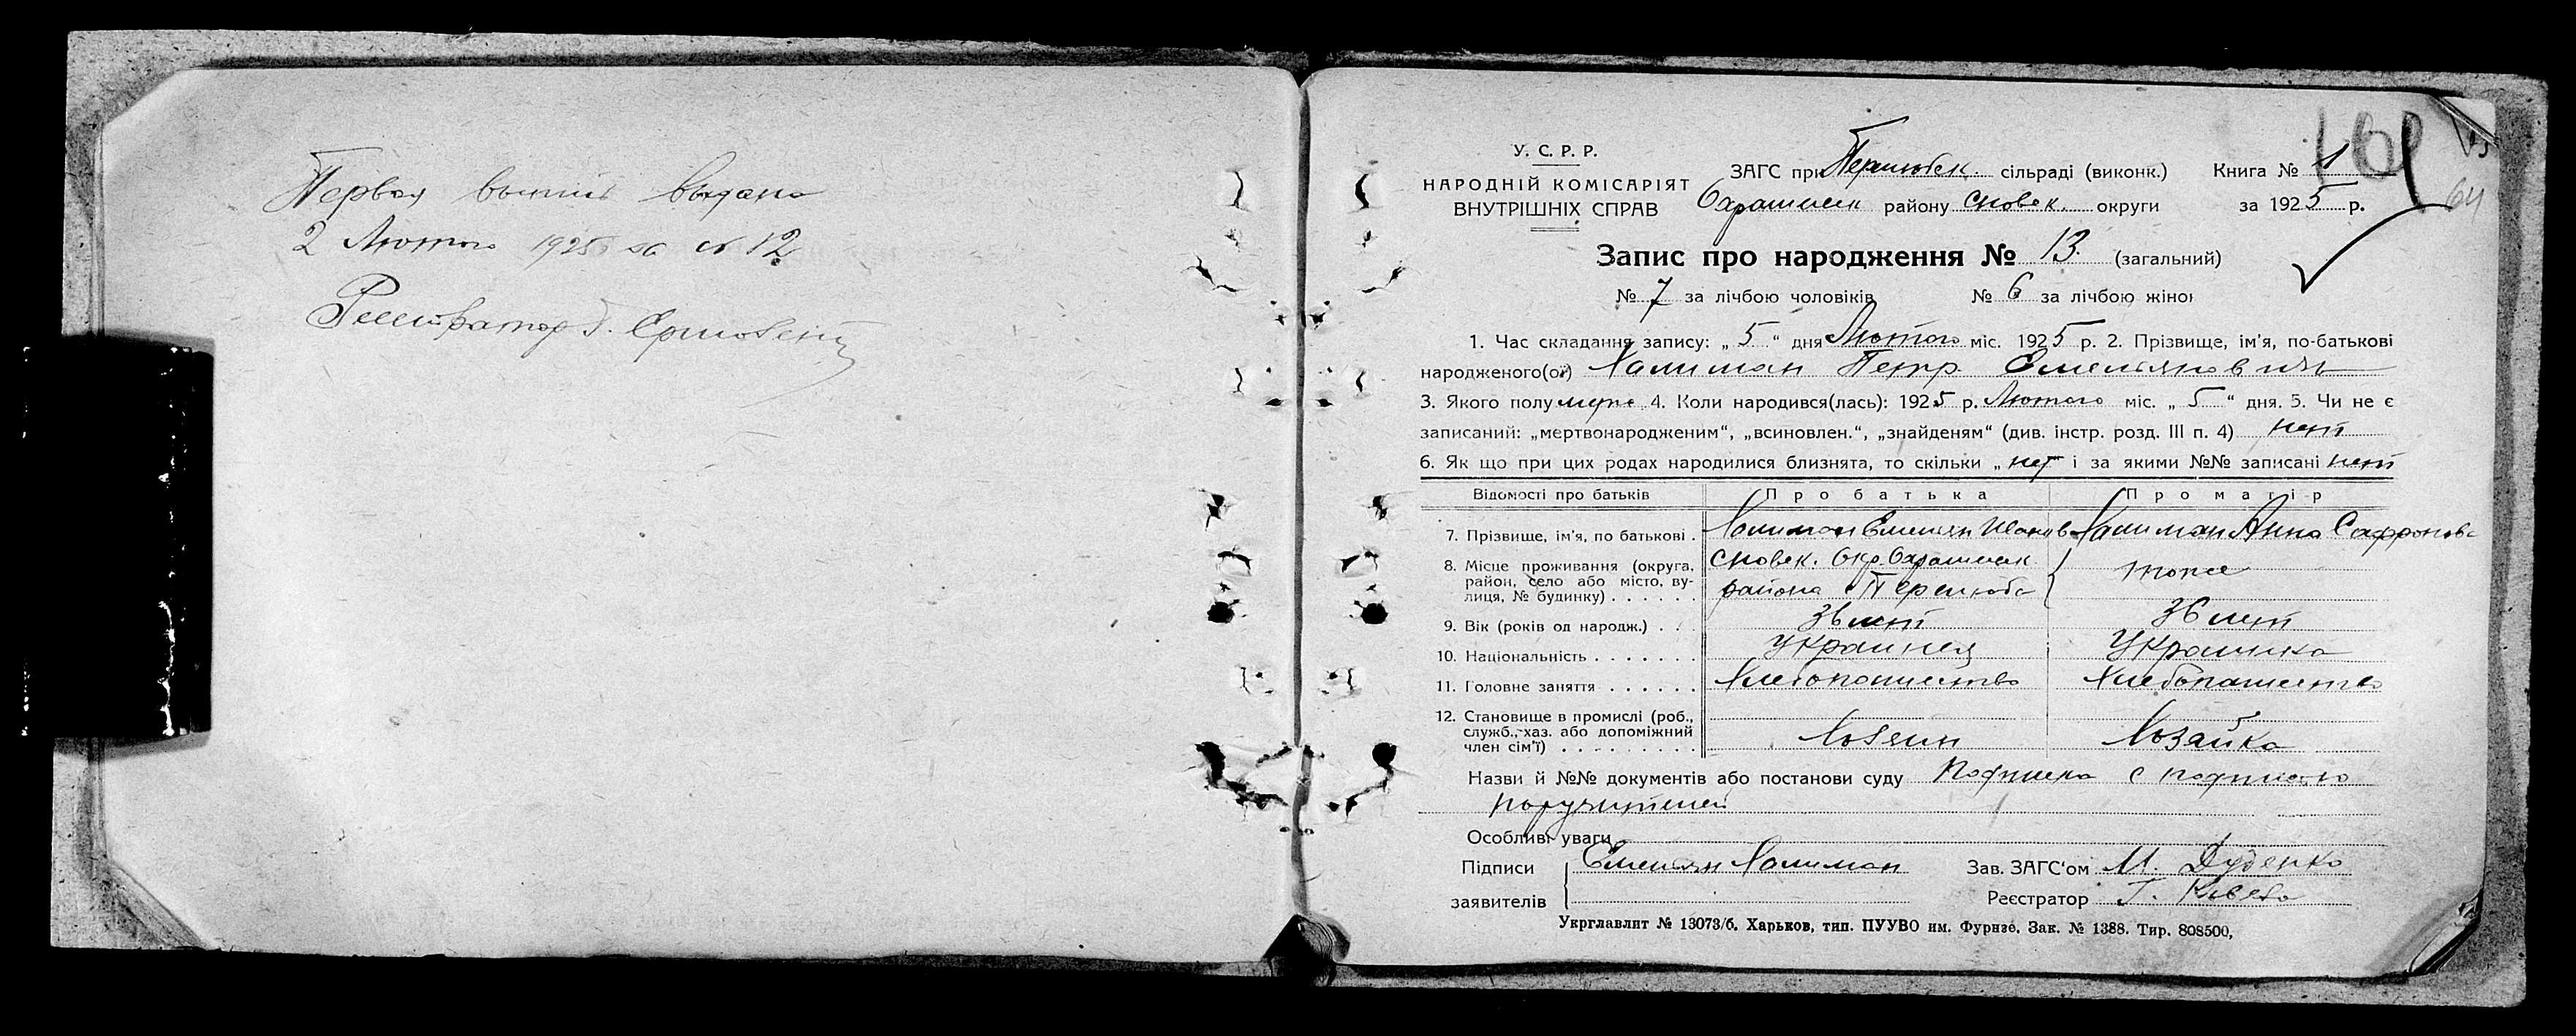 Первая выпись выдана
2 Лютого 1925 за № 12
У. С. Р. Р.
НАРОДНІЙ КОМІСАРІЯТ
ВНУТРІШНІХ СПРАВ
ЗАГС при Перелюбск. сільраді (виконк.)
района Сновск. округи
Книга № 1
за 1925 р.
64
Запис про народження № 13. (загальний)
№ 7 за лічбою чоловіків № 6 за лічбою жінок
1. Час складання запису: „ 5 “ дня Лютого міс. 1925 р. 2. Прізвище, ім'я, по-батькові
народженого(ої) Халиман Петр Емельянович
3. Якого полу муж. 4. Коли народився(лась): 1925 р. Лютого міс. „ 5 “ дня. 5. Чи не є
записаний: „мертвонародженим“, „всиновлен.“, „знайденям“ (див. інстр. розд. III п. 4) нет
6. Як що при цих родах народилися близнята, то скільки „ нет і за якими №№ записані нет
Відомості про батьків Про батька Про матір
7. Прізвище, ім'я, по батькові . Халиман Емельян Иванов Халиман Анна Сафронов
8. Місце проживання (округа, район, село або місто, вулиця, № будинку) . . . . . .
Сновск. Окр.
района Перелюба
тоже
9. Вік (років од народж.) . . . 36 лет 36 лет
10. Національність . . . . . . . Украинец Украинка
11. Головне заняття . . . . . . Хлебопашество Хлебопашество
12. Становище в промислі (роб.,
служб., хаз. або допоміжний
член сім'ї) . . . . . . . . . Хозяин Хозяйка
Назви й №№ документів або постанови суду Подписка с подписью
поручителей
Особливі уваги
Підписи
заявителів
Емельян Халиман
Зав. ЗАГС'ом М. Дуденко
Реєстратор Г.
Укрглавлит № 13073/б. Харьков, тип. ПУУВО им. Фрунзе. Зак. № 1388. Тир. 808500,